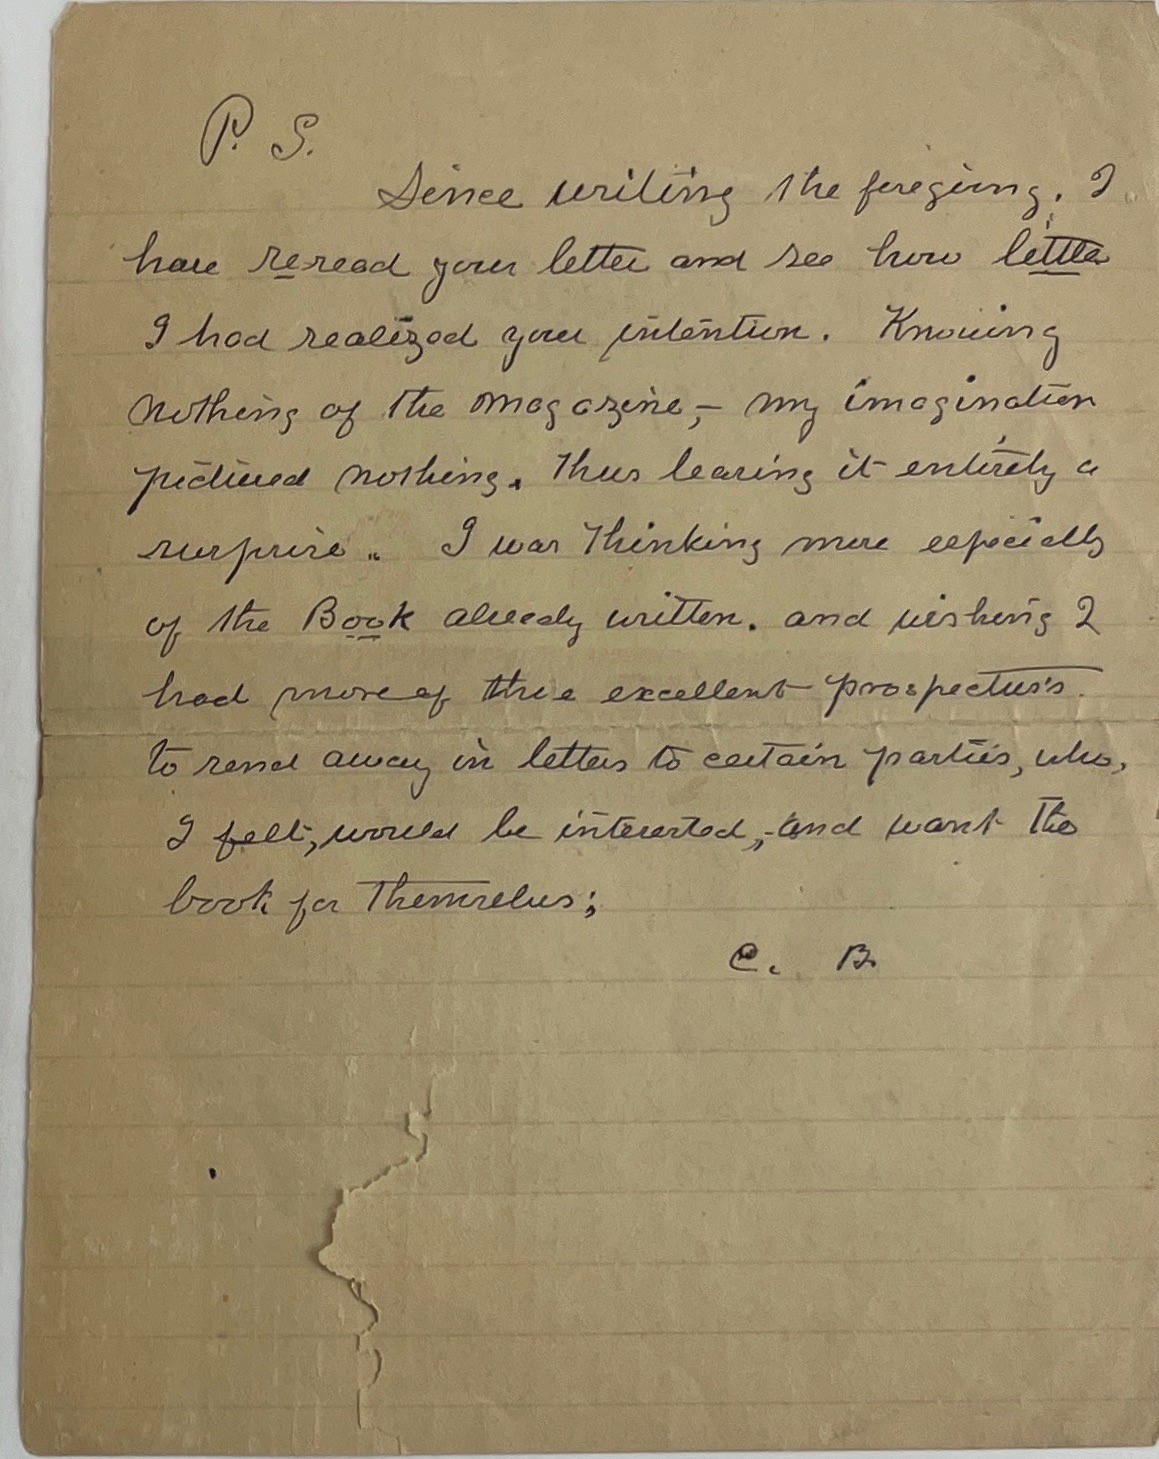 P. S.
Since writing the foregoing, I
have re-read your letter and see how little
I had realized your intention. Knowing
nothing of the magazine,- my imagination
pictured nothing. Thus leaving it entirely a
surprise. I was thinking more especially
of the Book already written. and wishing I
had more of those excellent prospectus's.
to send away in letters to certain parties, who,
I felt, would be interested,- and want the
book for themselves;
C. B.